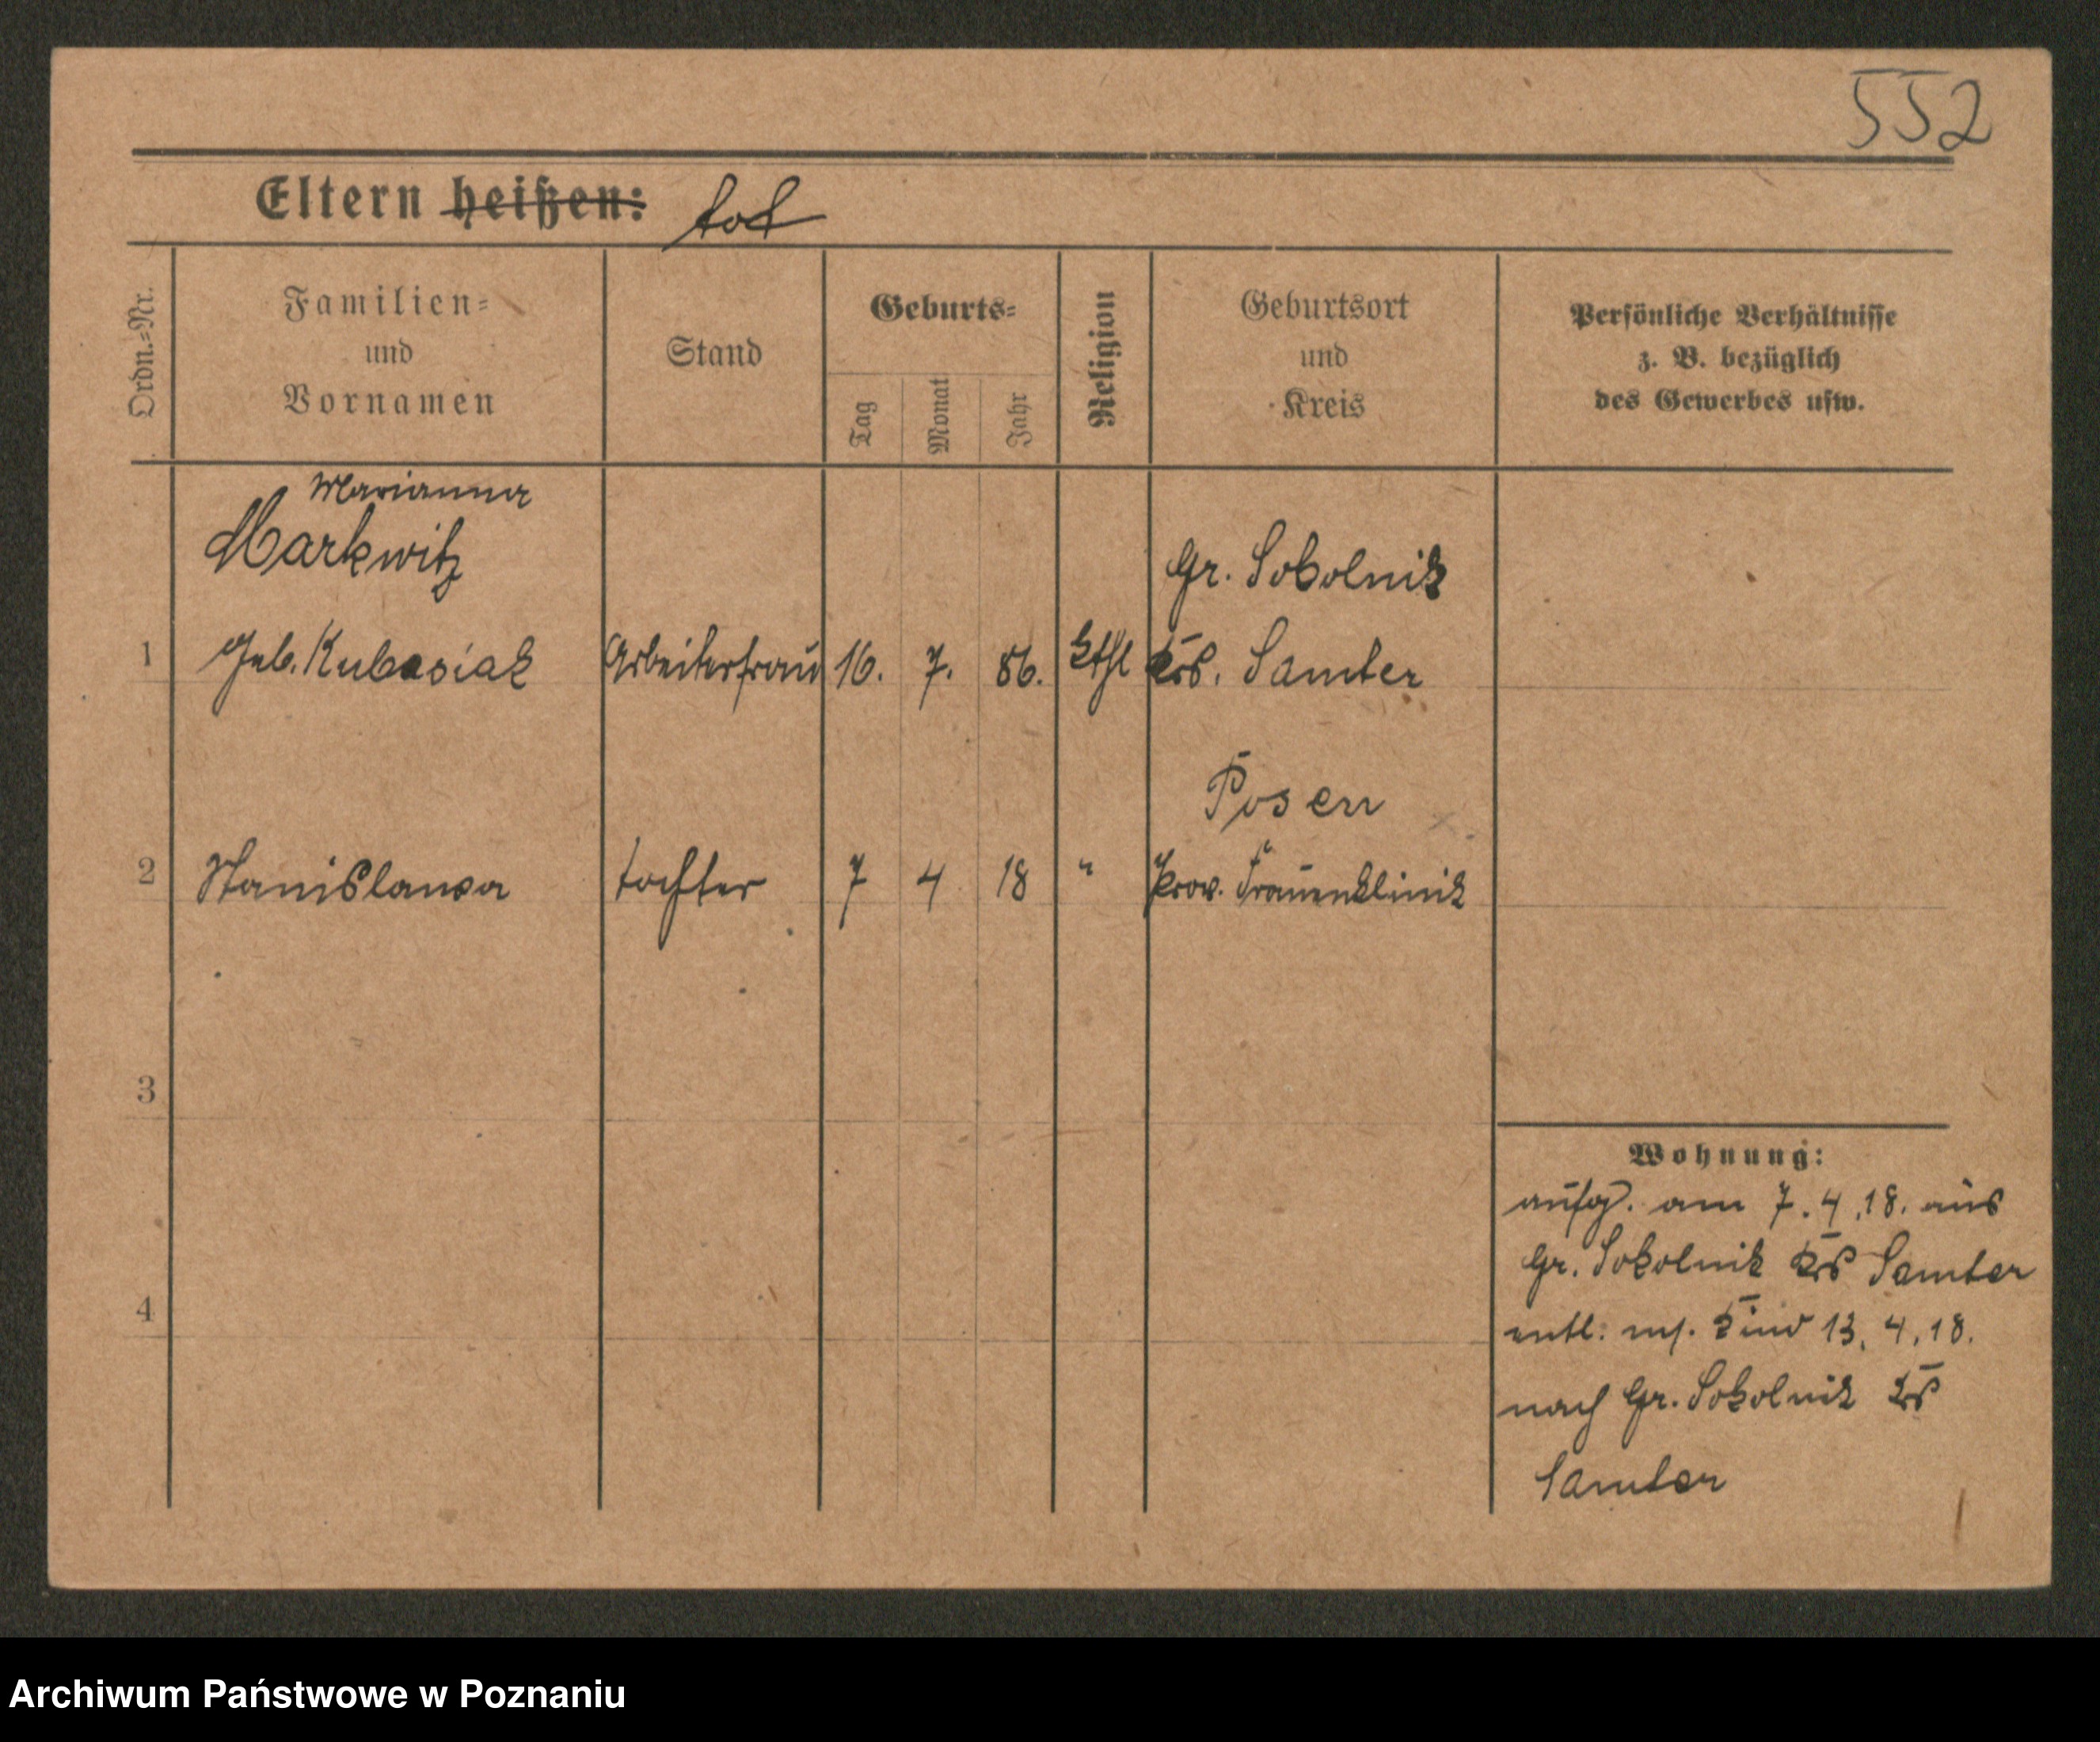 552
Eltern heißen: tot
Ordn.=Nr.
Familien=
und
Vornamen
Stand
Geburts=
Tag
Monat
Jahr
Religion
Geburtsort
und
Kreis
Persönliche Verhältnisse
z. B. bezüglich
des Gewerbes usw.
Marianna
Markwitz
Gr. Sobolnik
1 Geb. Kubasiak Arbeiterfrau 16. 7. 86. kthl Krs. Samter
Posen
2 Stanislawa Tochter 7 4 18 " Prov. Frauenklinik
3
4
Wohnung:
aufg. am 7.4.18. aus
Gr. Sokolnik Krs Samter
entl. m. Kind 13.4.18.
nach Gr. Sokolnik Krs
Samter
Archiwum Państwowe w Poznaniu